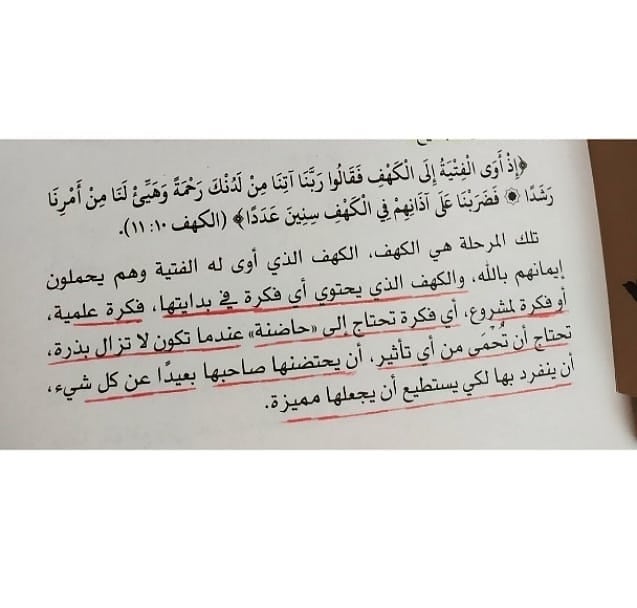 ﴿إِذْ أَوَى الْفِتْيَةُ إِلَى الْكَهْفِ فَقَالُوا رَبَّنَا آتِنَا مِنْ لَدُنْكَ رَحْمَةً وَهَيِّئْ لَنَا مِنْ أَمْرِنَا
رَشَدًا ۞ فَضَرَبْنَا عَلَى آذَانِهِمْ فِي الْكَهْفِ سِنِينَ عَدَدًا﴾ (الكهف ١٠: ١١).
تلك المرحلة هي الكهف، الكهف الذي أوى له الفتية وهم يحملون
إيمانهم بالله، والكهف الذي يحتوي أي فكرة في بدايتها، فكرة علمية،
أو فكرة لمشروع، أي فكرة تحتاج إلى «حاضنة» عندما تكون لا تزال بذرة،
تحتاج أن تُحْمَى من أي تأثير، أن يحتضنها صاحبها بعيدًا عن كل شيء،
أن ينفرد بها لكي يستطيع أن يجعلها مميزة.